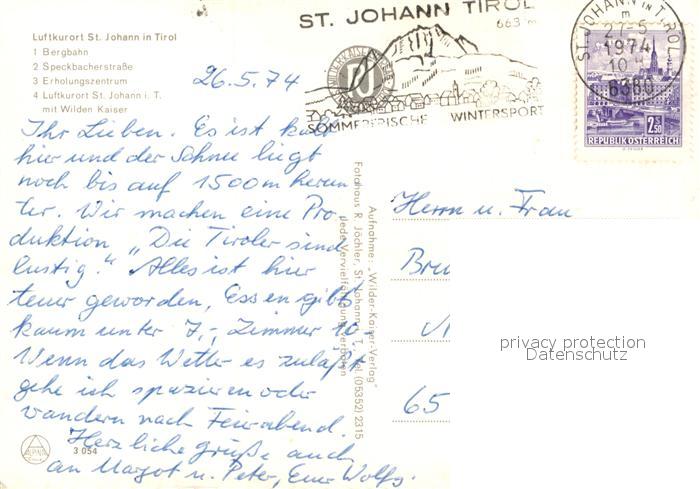 Luftkurort St. Johann in Tirol
1 Bergbahn
2 Speckbacherstraße
3 Erholungszentrum
4 Luftkurort St. Johann i. T.
mit Wilden Kaiser
26.5.74
Ihr Lieben. Es ist kalt
hier und der Schnee liegt
noch bis auf 1500m herun
ter. Wir machen eine Pro
duktion „Die Tiroler sind
lustig." Alles ist hier
teuer geworden, Essen gibts
kaum unter 7,-, Zimmer 10-
Wenn das Wetter es zuläßt
gehe ich spazieren oder
wandern nach Feierabend.
Herzliche Grüße auch
an Margot u. Peter, Euer Wolfg.
ALPINA
3 054
Fotohaus R. Jöchler, St. Johann i. T. (05352) 2315
Jede Vervielfältigung verboten
Aufnahme: „Wilder-Kaiser-Verlag"
ST. JOHANN TIROL
663 m
SOMMERFRISCHE WINTERSPORT
ST. JOHANN IN TIROL
27-5
1974 10
6380
2.50
REPUBLIK ÖSTERREICH
Herrn u. Frau
65
privacy protection
Datenschutz